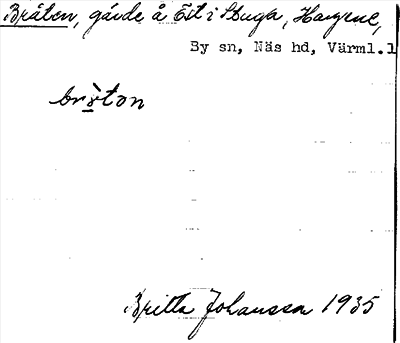 Bråten, gärde å Öst i Stuga, Hargene,
By sn, Näs hd, Värml.l
bròton
Britta Johansson 1935